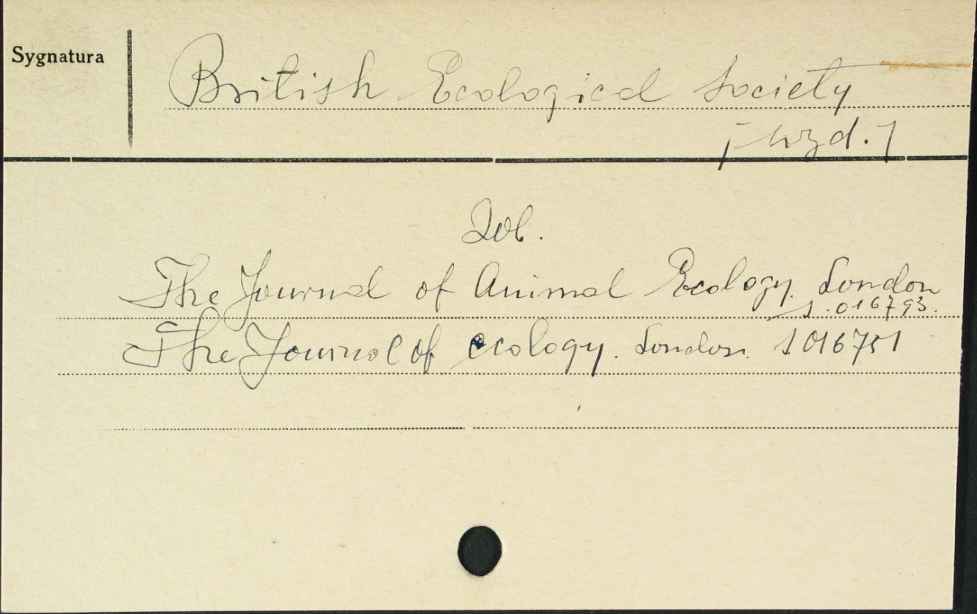 Sygnatura
British Ecological Society
[wyd.]
Zob.
The Journal of Animal Ecology. London
1.016793.
The Journal of ecology. London. 1016751